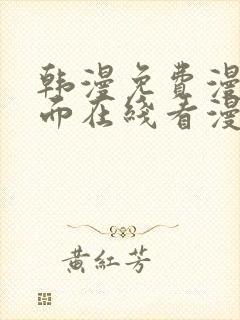 韩漫免费漫
而在线看漫
黄红芳